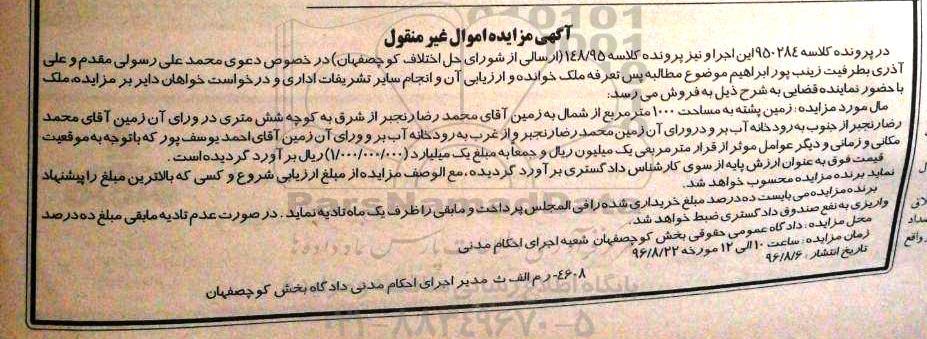 آگهی مزایده اموال غیر منقول
در پرونده کلاسه ۹۵۰۲۸۴ این اجرا و نیز پرونده کلاسه ۱۴۸/۹۵ (ارسالی از شورای حل اختلاف کوچصفهان) در خصوص دعوی محمد علی رسولی مقدم و علی
آذری بطرفیت زینب پور ابراهیم موضوع مطالبه پس تعرفه ملک خوانده و ارزیابی آن و انجام سایر تشریفات اداری و درخواست خواهان دایر بر مزایده، ملک
با حضور نماینده قضایی به شرح ذیل به فروش می رسد:
مال مورد مزایده: زمین پشته به مساحت ۱۰۰۰ متر مربع از شمال به زمین آقای محمد رضا رنجبر از شرق به کوچه شش متری در ورای آن زمین آقای محمد
رضا رنجبر از جنوب به رودخانه آب بر و در ورای آن زمین محمد رضا رنجبر و از غرب به رودخانه آب بر و ورای آن زمین آقای احمد یوسف پور که باتوجه به موقعیت
مکانی و زمانی و دیگر عوامل موثر از قرار متر مربعی یک میلیون ریال و جمعا به مبلغ یک میلیارد (۱/۰۰۰/۰۰۰/۰۰۰) ریال بر آورد گردیده است.
قیمت فوق به عنوان ارزش پایه از سوی کارشناس دادگستری بر آورد گردیده، مع الوصف مزایده از مبلغ ارزیابی شروع و کسی که بالاترین مبلغ را پیشنهاد
نماید برنده مزایده محسوب خواهد شد.
برنده مزایده می بایست ده درصد مبلغ خریداری شده را فی المجلس پرداخت و مابقی را ظرف یک ماه تادیه نماید. در صورت عدم تادیه مابقی مبلغ ده درصد
واریزی به نفع صندوق دادگستری ضبط خواهد شد.
محل مزایده: دادگاه عمومی حقوقی بخش کوچصفهان شعبه اجرای احکام مدنی
زمان مزایده: ساعت ۱۰ الی ۱۲ مورخه ۹۶/۸/۲۲
تاریخ انتشار: ۹۶/۸/۶
۴۶۰۸- رم الف ث مدیر اجرای احکام مدنی دادگاه بخش کوچصفهان
ParsNamadData
۰۲۱-۸۸۳۴۹۶۷۰-۵